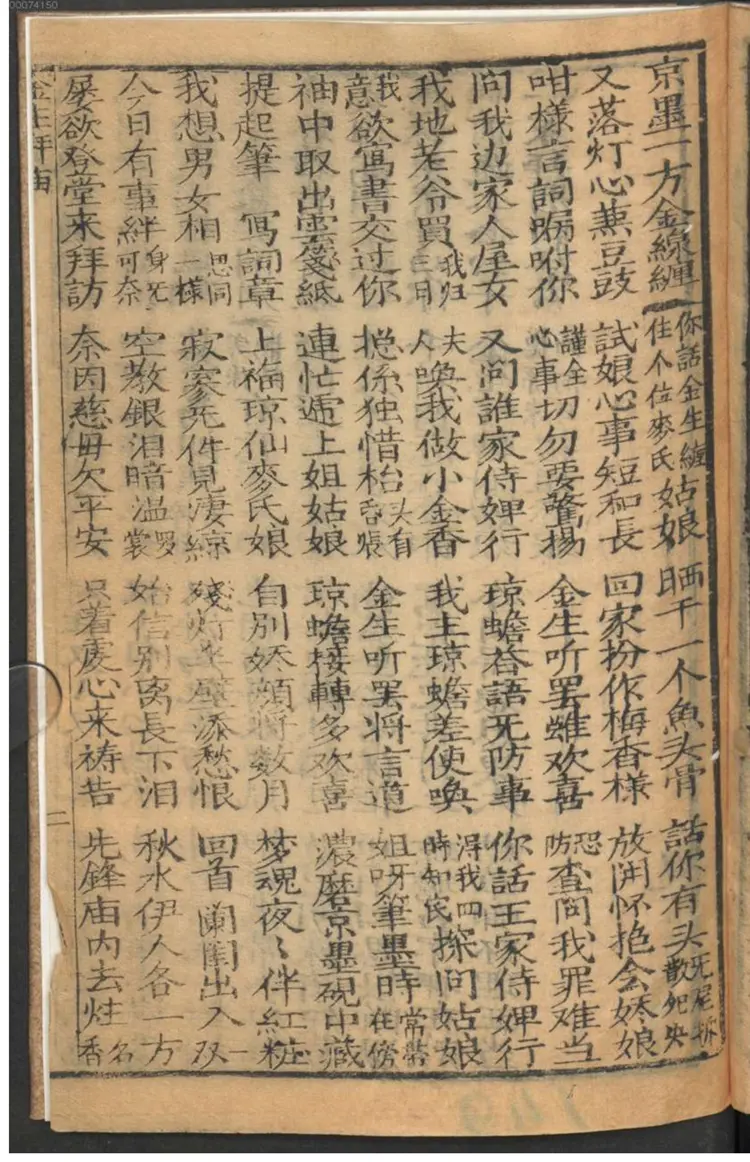 00074150
京墨一方金線纏 你話金生纏住个位麥氏姑娘 晒干一个魚头骨 話你有头无尾拆散死央
又落灯心兼豆豉 試娘心事短和长 回家扮作梅香様 放開怀抱会妖娘
咁様言詞嘱咐你 謹全心事切勿要驚揚 金生听罢雖欢喜 恐防查問我罪难当
問我边家人屋女 又問誰家侍婢行 琼蟾荅語无防事 你話王家侍婢行
我地老爷買我归三日 夫人喚我做小金香 我主琼蟾差使喚 淂我四時知氏探問姑娘
我意欲寫書交过你 揔係独惜枱头有香賬 金生听罢将言道 姐呀筆墨時常帯在傍
袖中取出雲箋紙 連忙遞上姐姑娘 琼蟾接轉多欢喜 濃磨京墨硯中藏
提起筆 寫詞章 上福琼仙麥氏娘 自別妖顔将数月 梦魂夜〻伴紅粧
我想男女相思同一様 寂寥死件見凄凉 残灯半壁添愁恨 回首蘭閨出入双
今日有事絆身无可奈 空教銀泪暗温羅裳 始信別离長下泪 秋水伊人各一方
屡欲登堂来拜訪 奈因慈毋欠平安 只着虔心来祷告 先鋒庙内去炷名香
金生拜庙
二